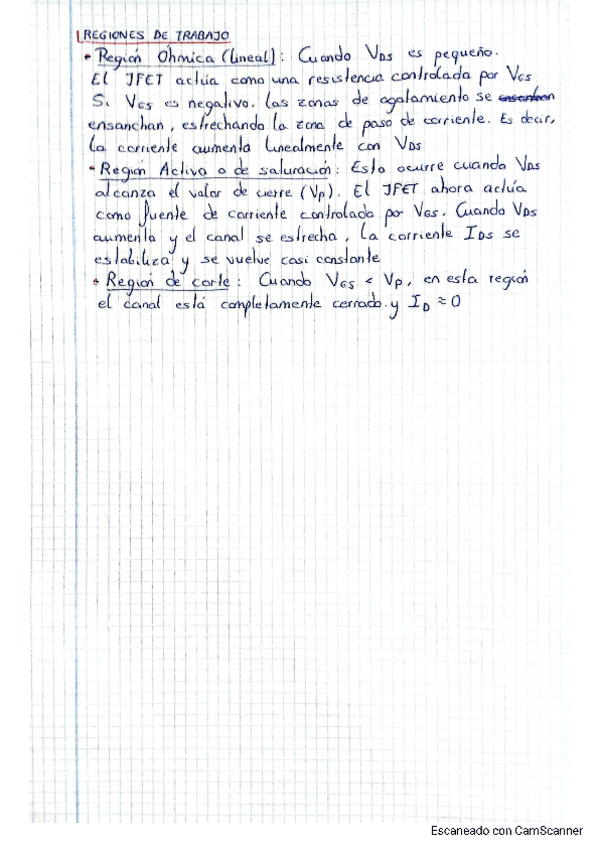 REGIONES DE TRABAJO
• Región Ohmica (Lineal): Cuando VDS es pequeño.
El JFET actúa como una resistencia controlada por VGS
Si VGS es negativo. las zonas de agotamiento se ensanchan
ensanchan, estrechando la zona de paso de corriente. Es decir,
la corriente aumenta linealmente con VDS
• Región Activa o de saturación: Esto ocurre cuando VDS
alcanza el valor de cierre (Vp). El JFET ahora actúa
como fuente de corriente controlada por VGS. Cuando VDS
aumenta y el canal se estrecha, la corriente IDS se
estabiliza y se vuelve casi constante
• Región de corte: Cuando VGS < Vp, en esta región
el canal está completamente cerrado. y ID ≈ 0
Escaneado con CamScanner